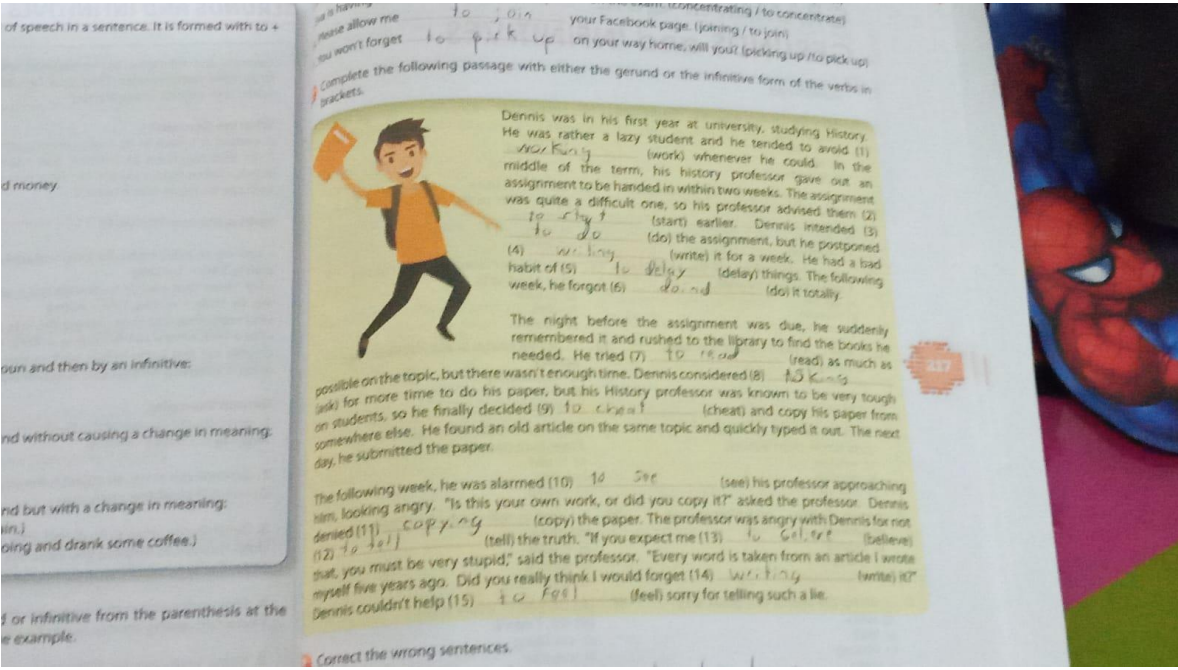 of speech in a sentence. It is formed with to +
d money.
oun and then by an infinitive:
nd without causing a change in meaning:
nd but with a change in meaning:
in.)
oing and drank some coffee.)
d or infinitive from the parenthesis at the
e example.
concentrating / to concentrate)
Please allow me to join your Facebook page. (joining / to join)
You won't forget to pick up on your way home, will you? (picking up /to pick up)
Complete the following passage with either the gerund or the infinitive form of the verbs in
brackets.
Dennis was in his first year at university, studying History.
He was rather a lazy student and he tended to avoid (1)
working (work) whenever he could. In the
middle of the term, his history professor gave out an
assignment to be handed in within two weeks. The assignment
was quite a difficult one, so his professor advised them (2)
to start (start) earlier. Dennis intended (3)
to do (do) the assignment, but he postponed
(4) writing (write) it for a week. He had a bad
habit of (5) to delay (delay) things. The following
week, he forgot (6) (do) it totally.
The night before the assignment was due, he suddenly
remembered it and rushed to the library to find the books he
needed. He tried (7) to read (read) as much as
possible on the topic, but there wasn't enough time. Dennis considered (8)
(ask) for more time to do his paper, but his History professor was known to be very tough
on students, so he finally decided (9) to cheat (cheat) and copy his paper from
somewhere else. He found an old article on the same topic and quickly typed it out. The next
day, he submitted the paper.
The following week, he was alarmed (10) to see (see) his professor approaching
him, looking angry. "Is this your own work, or did you copy it?" asked the professor. Dennis
denied (11) copying (copy) the paper. The professor was angry with Dennis for not
(12) to tell (tell) the truth. "If you expect me (13) to (believe)
that, you must be very stupid," said the professor. "Every word is taken from an article I wrote
myself five years ago. Did you really think I would forget (14) writing (write) it?"
Dennis couldn't help (15) to feel (feel) sorry for telling such a lie.
217
Correct the wrong sentences.